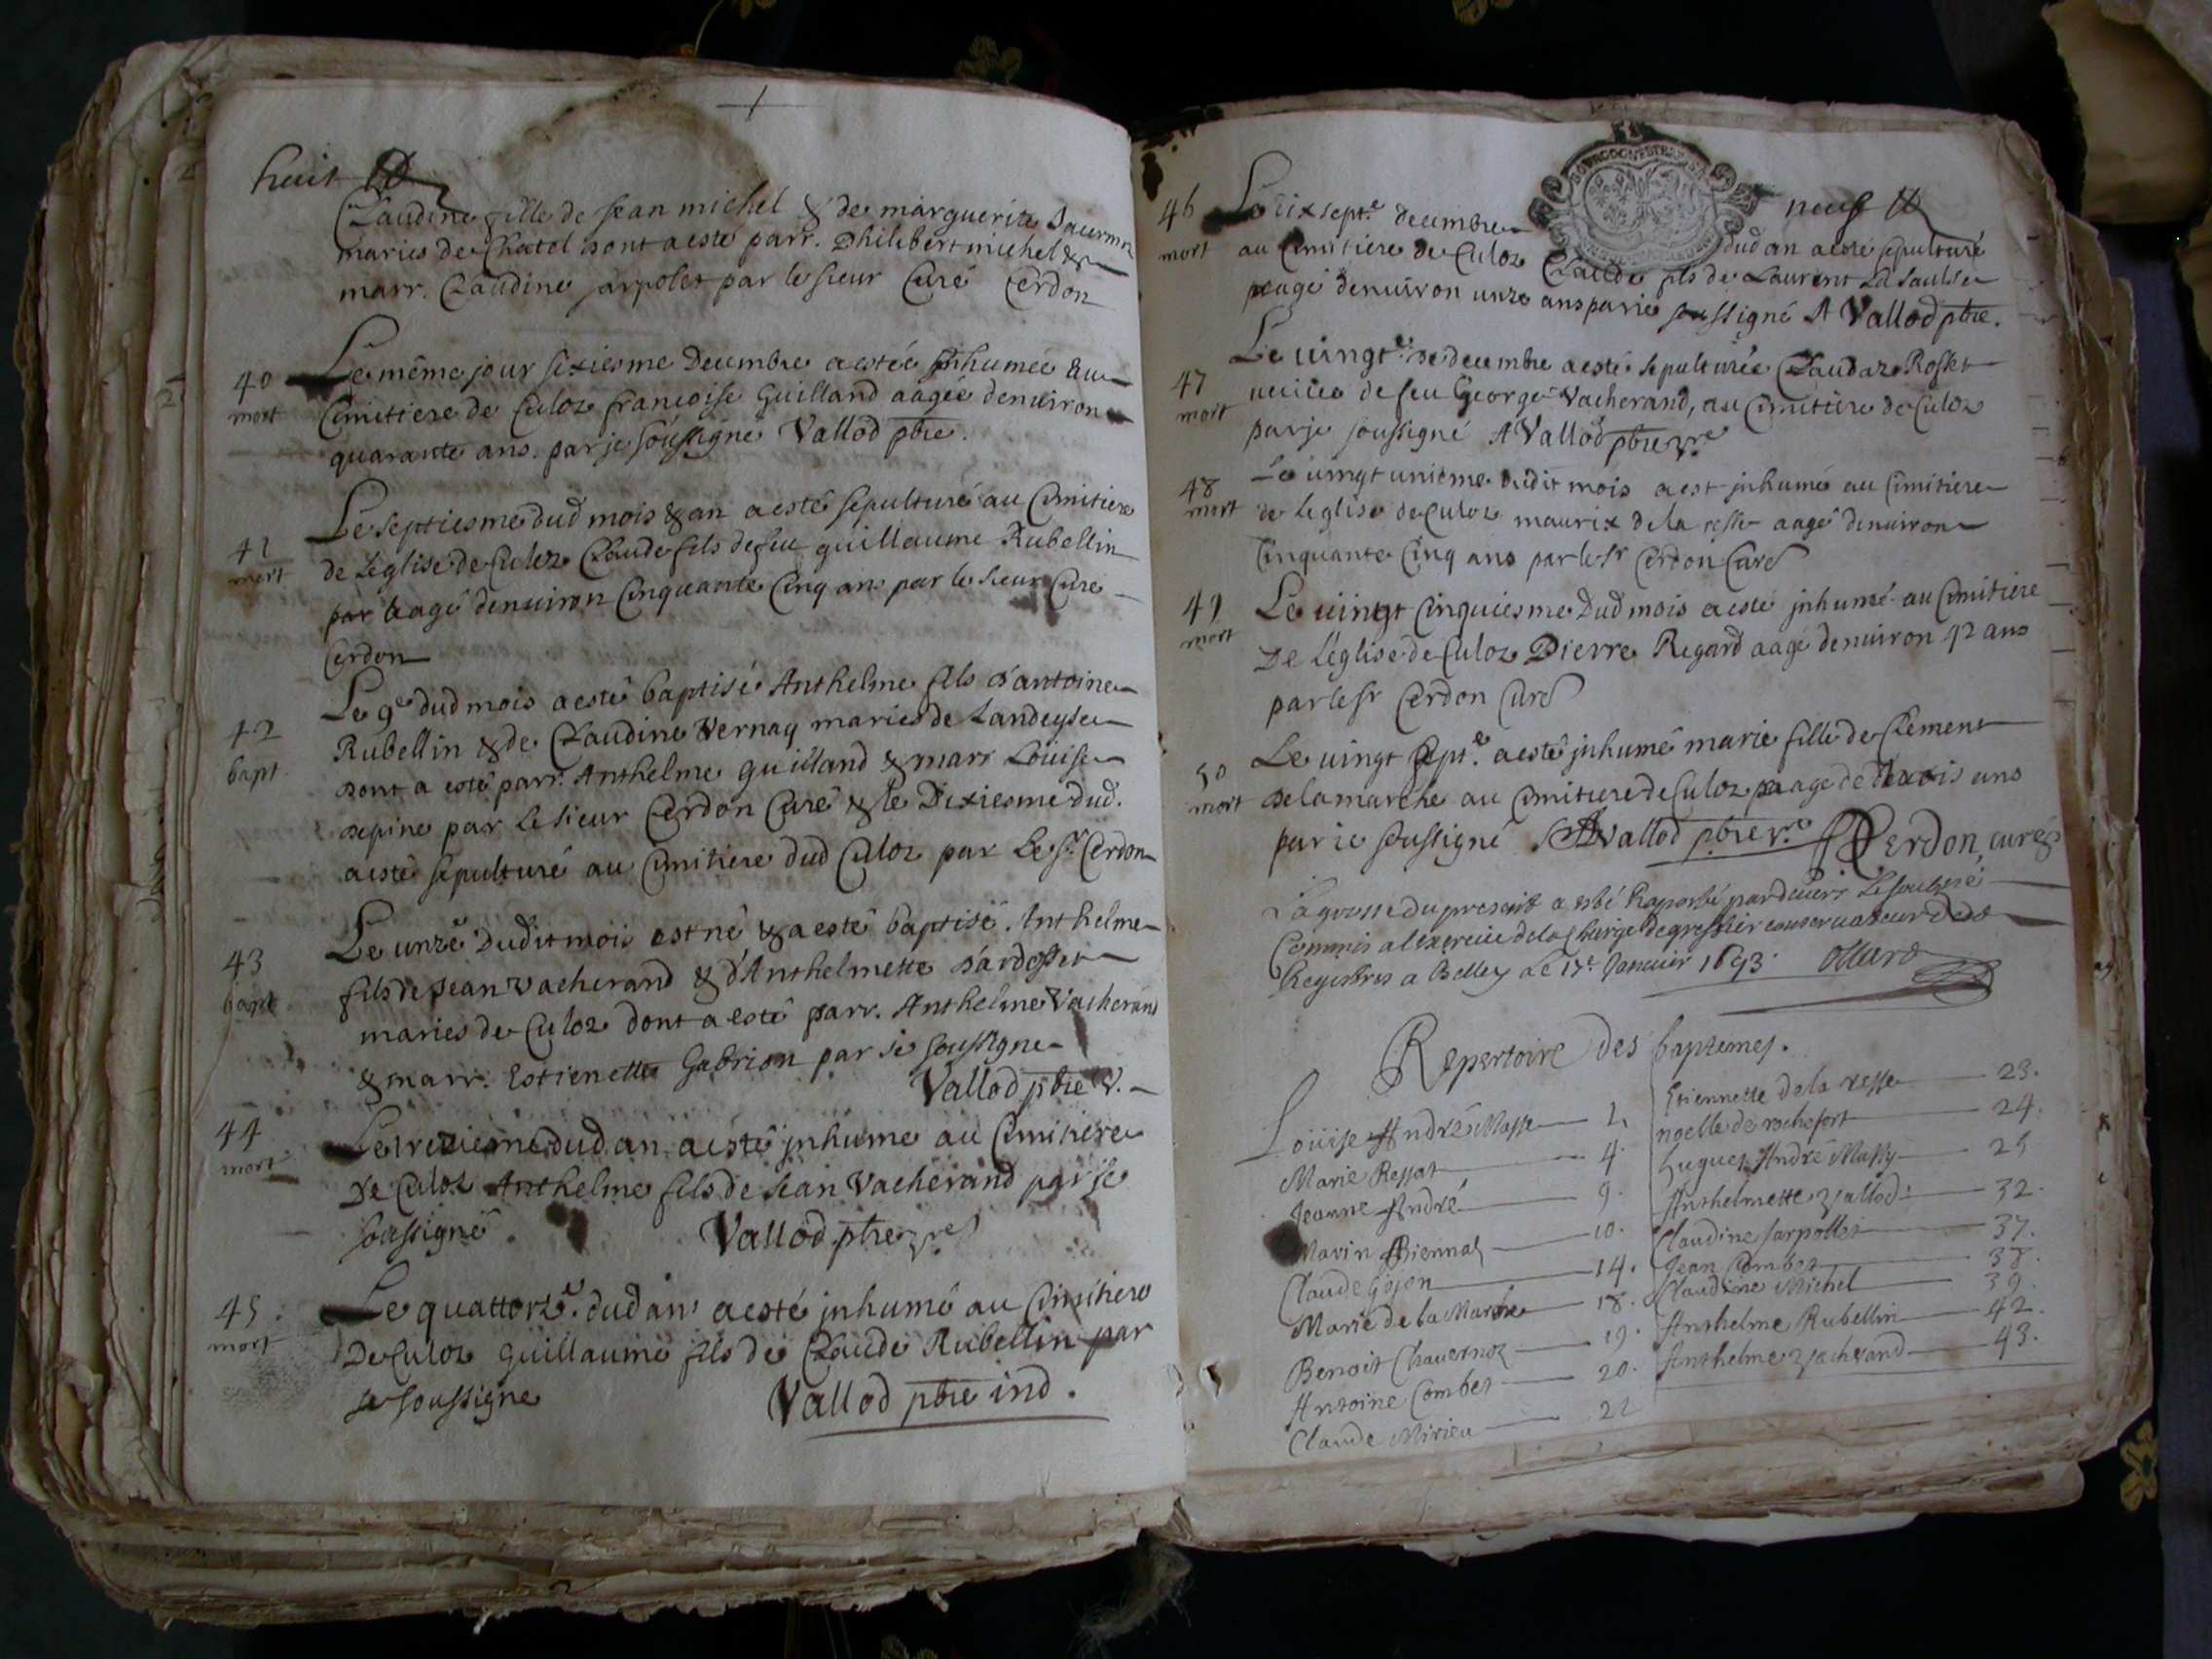 huit
Claudine fille de Jean michel & de marguerite
maries de Chatel dont a esté parr. Philibert michel &
marr. Claudine sarpolet par le sieur Curé Cerdon
40
mort
Le même jour sixiesme decembre a estée inhumée au
Cimitiere de Culoz francoise Guilland aagée denuiron
quarante ans. par je soussigné Vallod pbre.
41
mort
Le septiesme dud mois & an a esté sepulturé au Cimitiere
de Leglise de Culoz Claude fils de feu guillaume Rubellin
par aagé denuiron Cinquante Cinq ans par le sieur Curé
Cerdon
42
bapt.
Le 9e dud mois a esté baptisé Anthelme fils d'antoine
Rubellin & de Claudine Vernay maries de Landeyse
dont a esté parr. Anthelme guilland & marr Louise
depine par Le sieur Cerdon Curé & le Dixiesme dud.
a esté sepulturé au Cimitiere dud Culoz par Le Sr. Cerdon
43
bapt
Le unze Dudit mois est né & a esté baptisé. Anthelme
fils de Jean vacherand & d'Anthelmette
maries de Culoz dont a esté parr. Anthelme Vacherand
& marr. Estienette par je soussigne
Vallod pbre v.
44
mort
Le treziesme dud an a esté inhume au Cimitiere
De Culoz Anthelme fils de Jean Vacherand par je
soussigné Vallod pbre vre
45
mort
Le quattorze. dud an a esté inhumé au Cimitiere
De Culoz guillaume fils de Claude Rubellin par
je soussigne Vallod pbre ind.
46
mort
neuf
Le dixsept.e decembre dud an a esté sepulturé
au Cimitiere de Culoz Claude fils de Laurent La saulse
aagé denuiron unze ans par je soussigné A Vallod pbre.
47
mort
Le uingt.e de decembre a esté sepulturée Claudaz Rosset
ueuue de feu George Vacherand, au Cimitiere de Culoz
par je soussigné A Vallod pbre vre
48
mort
Le uingt unieme dudit mois a est inhumé au Cimitiere
de Leglise de Culoz maurix de la resse aagé denuiron
Cinquante Cinq ans par le sr Cerdon Curé
49
mort
Le uingt Cinquiesme Dud mois a esté inhumé au Cimitiere
De Léglise de Culoz Pierre Regard aagé denuiron 42 ans
par le sr Cerdon Curé
50
mort
Le uingt sept.e a esté inhumé marie fille de Clement
de la marche au Cimitiere de Culoz aage de trois ans
par je soussigné A Vallod pbre v.e Cerdon, curé
La grosse du present a esté Raportée pardeuers Le soubsné
Commis a lexercice de la charge de greffier conseruateur desd
Registres a Belley Le 17e Januier 1693.
Repertoire des baptemes.
Loüise André Masse 1.
Marie Ressat 4.
Jeanne André 9.
Marin 10.
Claude Gojon 14.
Marie de la Marche 18.
Benoit Chauernoz 19.
Antoine Combet 20.
Claude Mirieu 22
Etiennette de la resse 23.
noelle de rochefort 24.
hugues André Massy 25
Anthelmette Vallod 32.
Claudine sarpollet 37.
Jean Combet 38.
Claudine Michel 39.
Anthelme Rubellin 42.
Anthelme Vacherand 43.